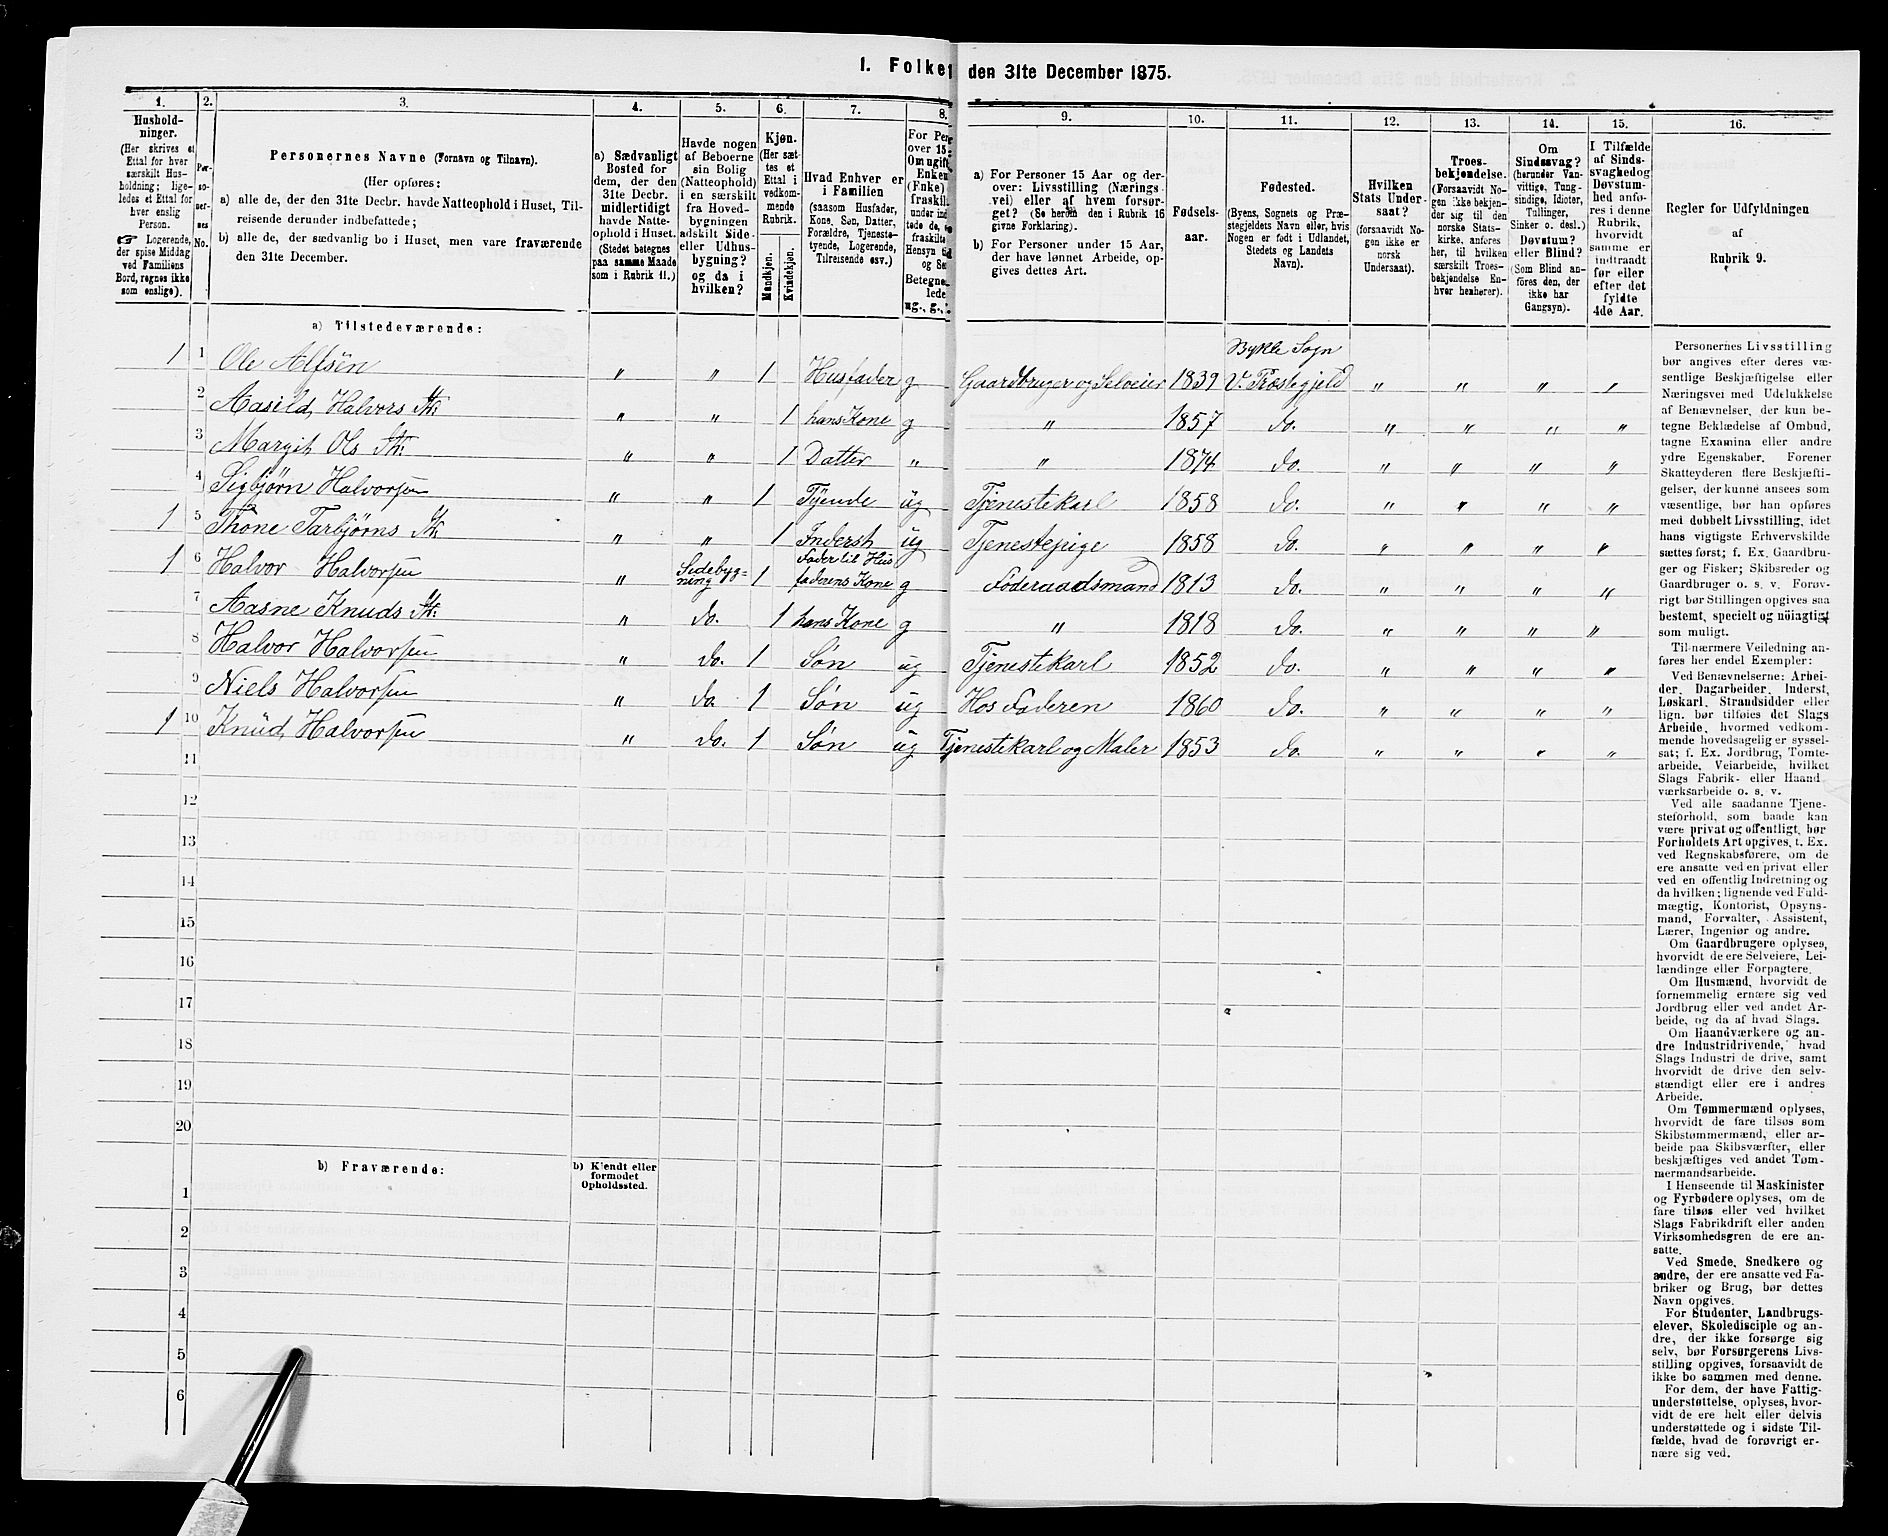 1. Folket
den 31te December 1875.
1.
2.
3.
4.
5.
6.
7.
8.
9.
10.
11.
12.
13.
14.
15.
16.
Hushold-
ninger.
(Her skrives et
Ettal for hver
særskilt Hus-
holdning; lige-
ledes et Ettal for
hver enslig
Person.
☞ Logerende,
der spise Middag
ved Familiens
Bord, regnes ikke
som enslige).
Per-
so-
ner-
nes
No.
Personernes Navne (Fornavn og Tilnavn).
(Her opføres:
a) alle de, der den 31te Decbr. havde Natteophold i Huset, Til-
reisende derunder indbefattede;
b) alle de, der sædvanlig bo i Huset, men vare fraværende
den 31te December.
a) Sædvanligt
Bosted for
dem, der den
31te Decbr.
midlertidigt
havde Natte-
ophold i Huset.
(Stedet betegnes
paa samme Maade
som i Rubrik 11.)
Havde nogen
af Beboerne
sin Bolig
(Natteophold)
i en særskilt
fra Hoved-
bygningen
adskilt Side-
eller Udhus-
bygning?
og da i
hvilken?
Kjøn.
(Her sæt-
tes et
Ettal i
vedkom-
mende
Rubrik.
Mandkjøn.
Kvindekjøn.
Hvad Enhver er
i Familien
(saasom Husfader,
Kone, Søn, Datter,
Forældre, Tjeneste-
tyende, Logerende,
Tilreisende osv.)
For Per
over 15
Om ugift
Enken
(Fnke)
fraskil
under ind
tede de,
fraskilte
Hensyn til
og Se
Betegne
lede
ug., g.,
a) For Personer 15 Aar og der-
over: Livsstilling (Nærings-
vei) eller af hvem forsør-
get? (Se herom den i Rubrik 16
givne Forklaring).
b) For Personer under 15 Aar,
der have lønnet Arbeide, op-
gives dettes Art.
Fødsels-
aar.
Fødested.
(Byens, Sognets og Præ-
stegjeldets Navn eller, hvis
Nogen er født i Udlandet,
Stedets og Landets
Navn).
Hvilken
Stats Under-
saat?
(forsaavidt No-
gen ikke er
norsk
Undersaat).
Troes-
bekjendelse.
(Forsaavidt No-
gen ikke bekjen-
der sig til den
norske Stats-
kirke, anføres
her, til hvilken
særskilt Troes-
bekjendelse En-
hver henhører).
Om
Sindssvag?
(herunder Van-
vittige, Tung-
sindige, Idioter,
Tullinger,
Sinker o. desl.)
Døvstum?
eller Blind?
(Som Blind an-
føres den, der
ikke har
Gangsyn).
I Tilfælde
af Sinds-
svaghed og
Døvstum-
hed anfø-
res i denne
Rubrik,
hvorvidt
samme er
indtraadt
før eller
efter det
fyldte
4de Aar.
Regler for Udfyldningen
af
Rubrik 9.
a) Tilstedeværende:
Bykle Sogn
1 1 Ole Alfsön " " 1 Husfader g Gaardbruger og Seloeier 1839 V. Præstegjeld " " " "
2 Aasild Halvors Dtr. " " 1 hans Kone g " 1857 do. " " " "
3 Margit Ols Dtr. " " 1 Datter " " 1874 do. " " " "
4 Sigbjørn Halvorsen " " 1 Tyende ug Tjenestekarl 1858 do. " " " "
1 5 Thone Tarbjørns Dtr. " " 1 Inderst ug Tjenestepige 1858 do. " " " "
1 6 Halvor Halvorsen " Sidebyg=
ning 1 Fader til Hus
faderens Kone g Föderaadsmand 1813 do. " " " "
7 Aasne Knuds Dtr. " do. 1 hans Kone g " 1818 do. " " " "
8 Halvor Halvorsen " do. 1 Søn ug Tjenestekarl 1852 do. " " " "
9 Niels Halvorsen " do. 1 Søn ug Hos Faderen 1860 do. " " " "
1 10 Knud Halvorsen " do. 1 Søn ug Tjenestekarl og Maler 1853 do. " " " "
11
12
13
14
15
16
17
18
19
20
b) Fraværende:
b) Kjendt eller
formodet
Opholdssted.
1
2
3
4
5
6
Personernes Livsstilling
bør angives efter deres væ-
sentlige Beskjæftigelse eller
Næringsvei med Udelukkelse
af Benævnelser, der kun be-
tegne Beklædelse af Ombud,
tagne Examina eller andre
ydre Egenskaber. Forener
Skatteyderen flere Beskjæfti-
gelser, der kunne ansees som
væsentlige, bør han opføres
med dobbelt Livsstilling, idet
hans vigtigste Erhvervskilde
sættes først; f. Ex. Gaardbru-
ger og Fisker; Skibsreder og
Gaardbruger o. s. v. Forøv-
rigt bør Stillingen opgives saa
bestemt, specielt og nöiagtigt
som muligt.
Til nærmere Veiledning an-
føres her endel Exempler:
Ved Benævnelserne: Arbei-
der, Dagarbeider, Inderst,
Løskarl, Strandsidder eller
lign. bør tilføies det Slags
Arbeide, hvormed vedkom-
mende hovedsagelig er syssel-
sat; f. Ex. Jordbrug, Tomte-
arbeide, Veiarbeide, hvilket
Slags Fabrik- eller Haand-
værksarbeide o. s. v.
Ved alle saadanne Tjene-
steforhold, som baade kan
være privat og offentligt, bør
Forholdets Art opgives, t. Ex.
ved Regnskabsførere, om de
ere ansatte ved en privat eller
ved en offentlig Indretning og
da hvilken; lignende ved Fuld-
mægtig, Kontorist, Opsyns-
mand, Forvalter, Assistent,
Lærer, Ingeniør og andre.
Om Gaardbrugere oplyses,
hvorvidt de ere Selveiere, Lei-
lændinge eller Forpagtere.
Om Husmænd, hvorvidt de
fornemmelig ernære sig ved
Jordbrug eller ved andet Ar-
beide, og da af hvad Slags.
Om Haandværkere og an-
dre Industridrivende, hvad
Slags Industri de drive, samt
hvorvidt de drive den selv-
stændigt eller ere i andres
Arbeide.
Om Tømmermænd oplyses,
hvorvidt de fare tilsøs som
Skibstømmermænd, eller ar-
beide paa Skibsværfter, eller
beskjæftiges ved andet Tøm-
mermandsarbeide.
I Henseende til Maskinister
og Fyrbødere oplyses, om de
fare tilsøs eller ved hvilket
Slags Fabrikdrift eller anden
Virksomhedsgren de ere an-
satte.
Ved Smede, Snedkere og
andre, der ere ansatte ved Fa-
briker og Brug, bør dettes
Navn opgives.
For Studenter, Landbrugs-
elever, Skoledisciple og an-
dre, der ikke forsørge sig
selv, bør Forsørgerens Livs-
stilling opgives, forsaavidt de
ikke bo sammen med denne.
For dem, der have Fattig-
understøttelse, oplyses, hvor-
vidt de ere helt eller delvis
understøttede og i sidste Til-
fælde, hvad de forøvrigt er-
nære sig ved.